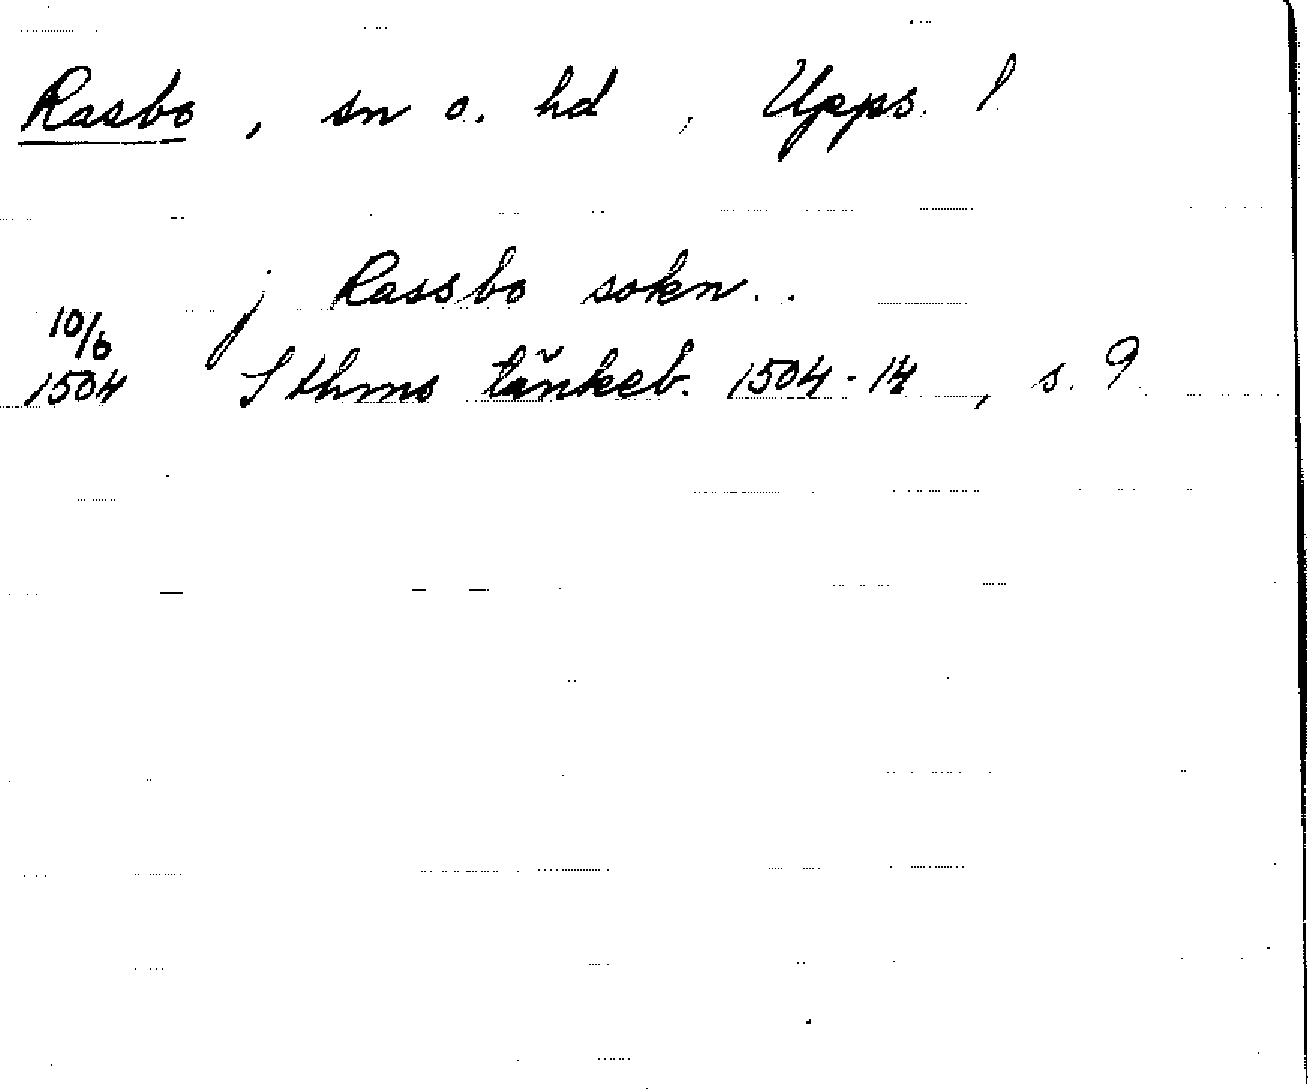 Rasbo, sn o. hd, Upps. l.
j Rassbo sokn..
10/6
1504 Sthms tänkeb. 1504-14, s. 9.